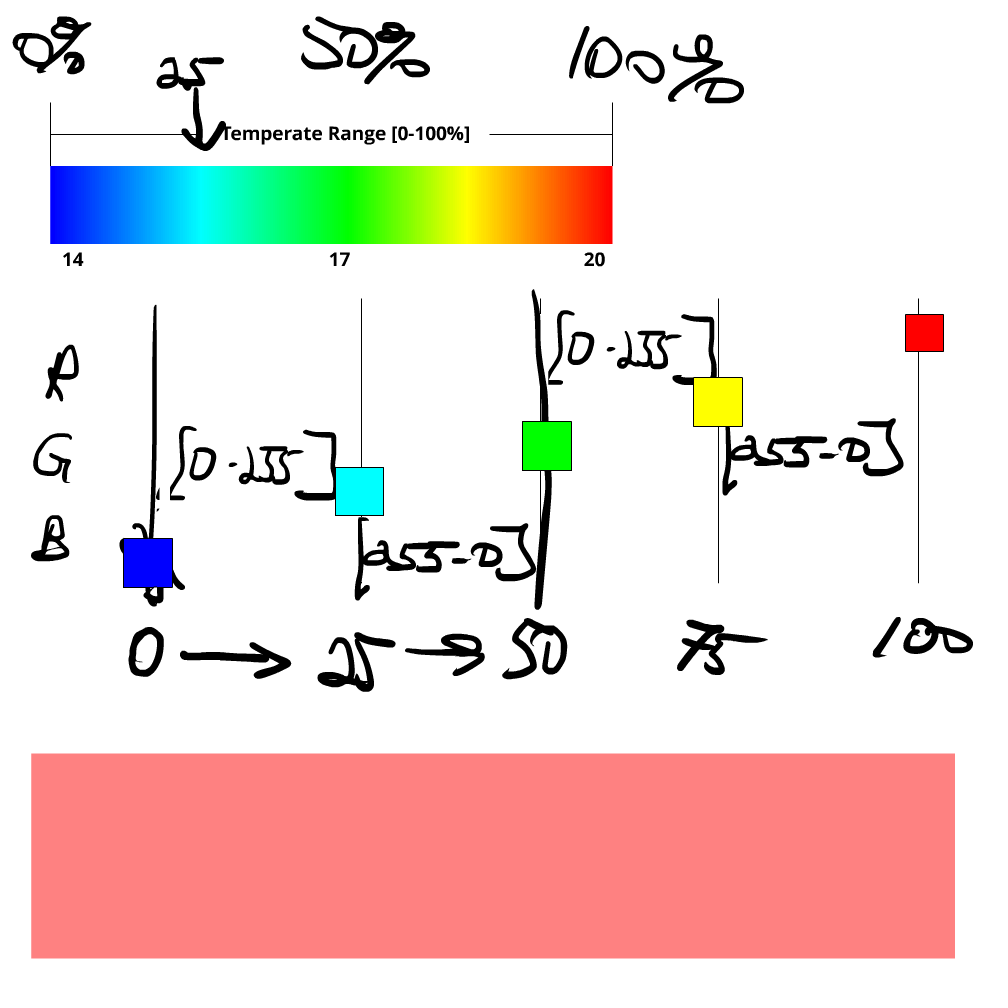 0% 50% 100%
25
Temperate Range [0-100%]
14 17 20
R [0-255]
G [0-255] [255-0]
B [255-0]
0 25 50 75 100